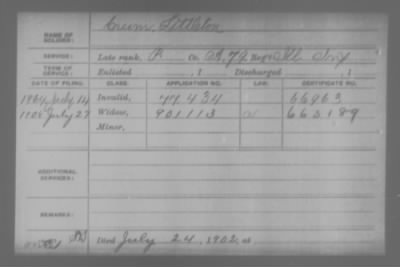 NAME OF SOLDIER: Crum, Littleton
SERVICE: Late rank, P Co. 79 Reg't Ill Inf
TERM OF SERVICE: Enlisted , 1 Discharged , 1
DATE OF FILING. CLASS. APPLICATION NO. LAW. CERTIFICATE NO.
July 14 Invalid, 44 434 66963
July 27 Widow, 901113
Minor,
ADDITIONAL SERVICES:
REMARKS:
Died July 24, 1902, at